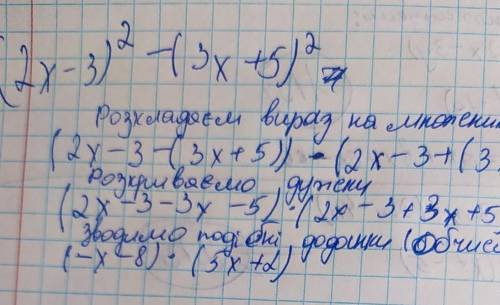 (2x-3)² -(3x+5)²
Розкладаєм вираз на множени
(2x-3-(3x+5)) · (2x-3+(3
Розкриваємо дужки
(2x-3-3x-5) · (2x-3+3x+5
Зводимо подібні доданки (Обчис
(-x-8) · (5x+2)